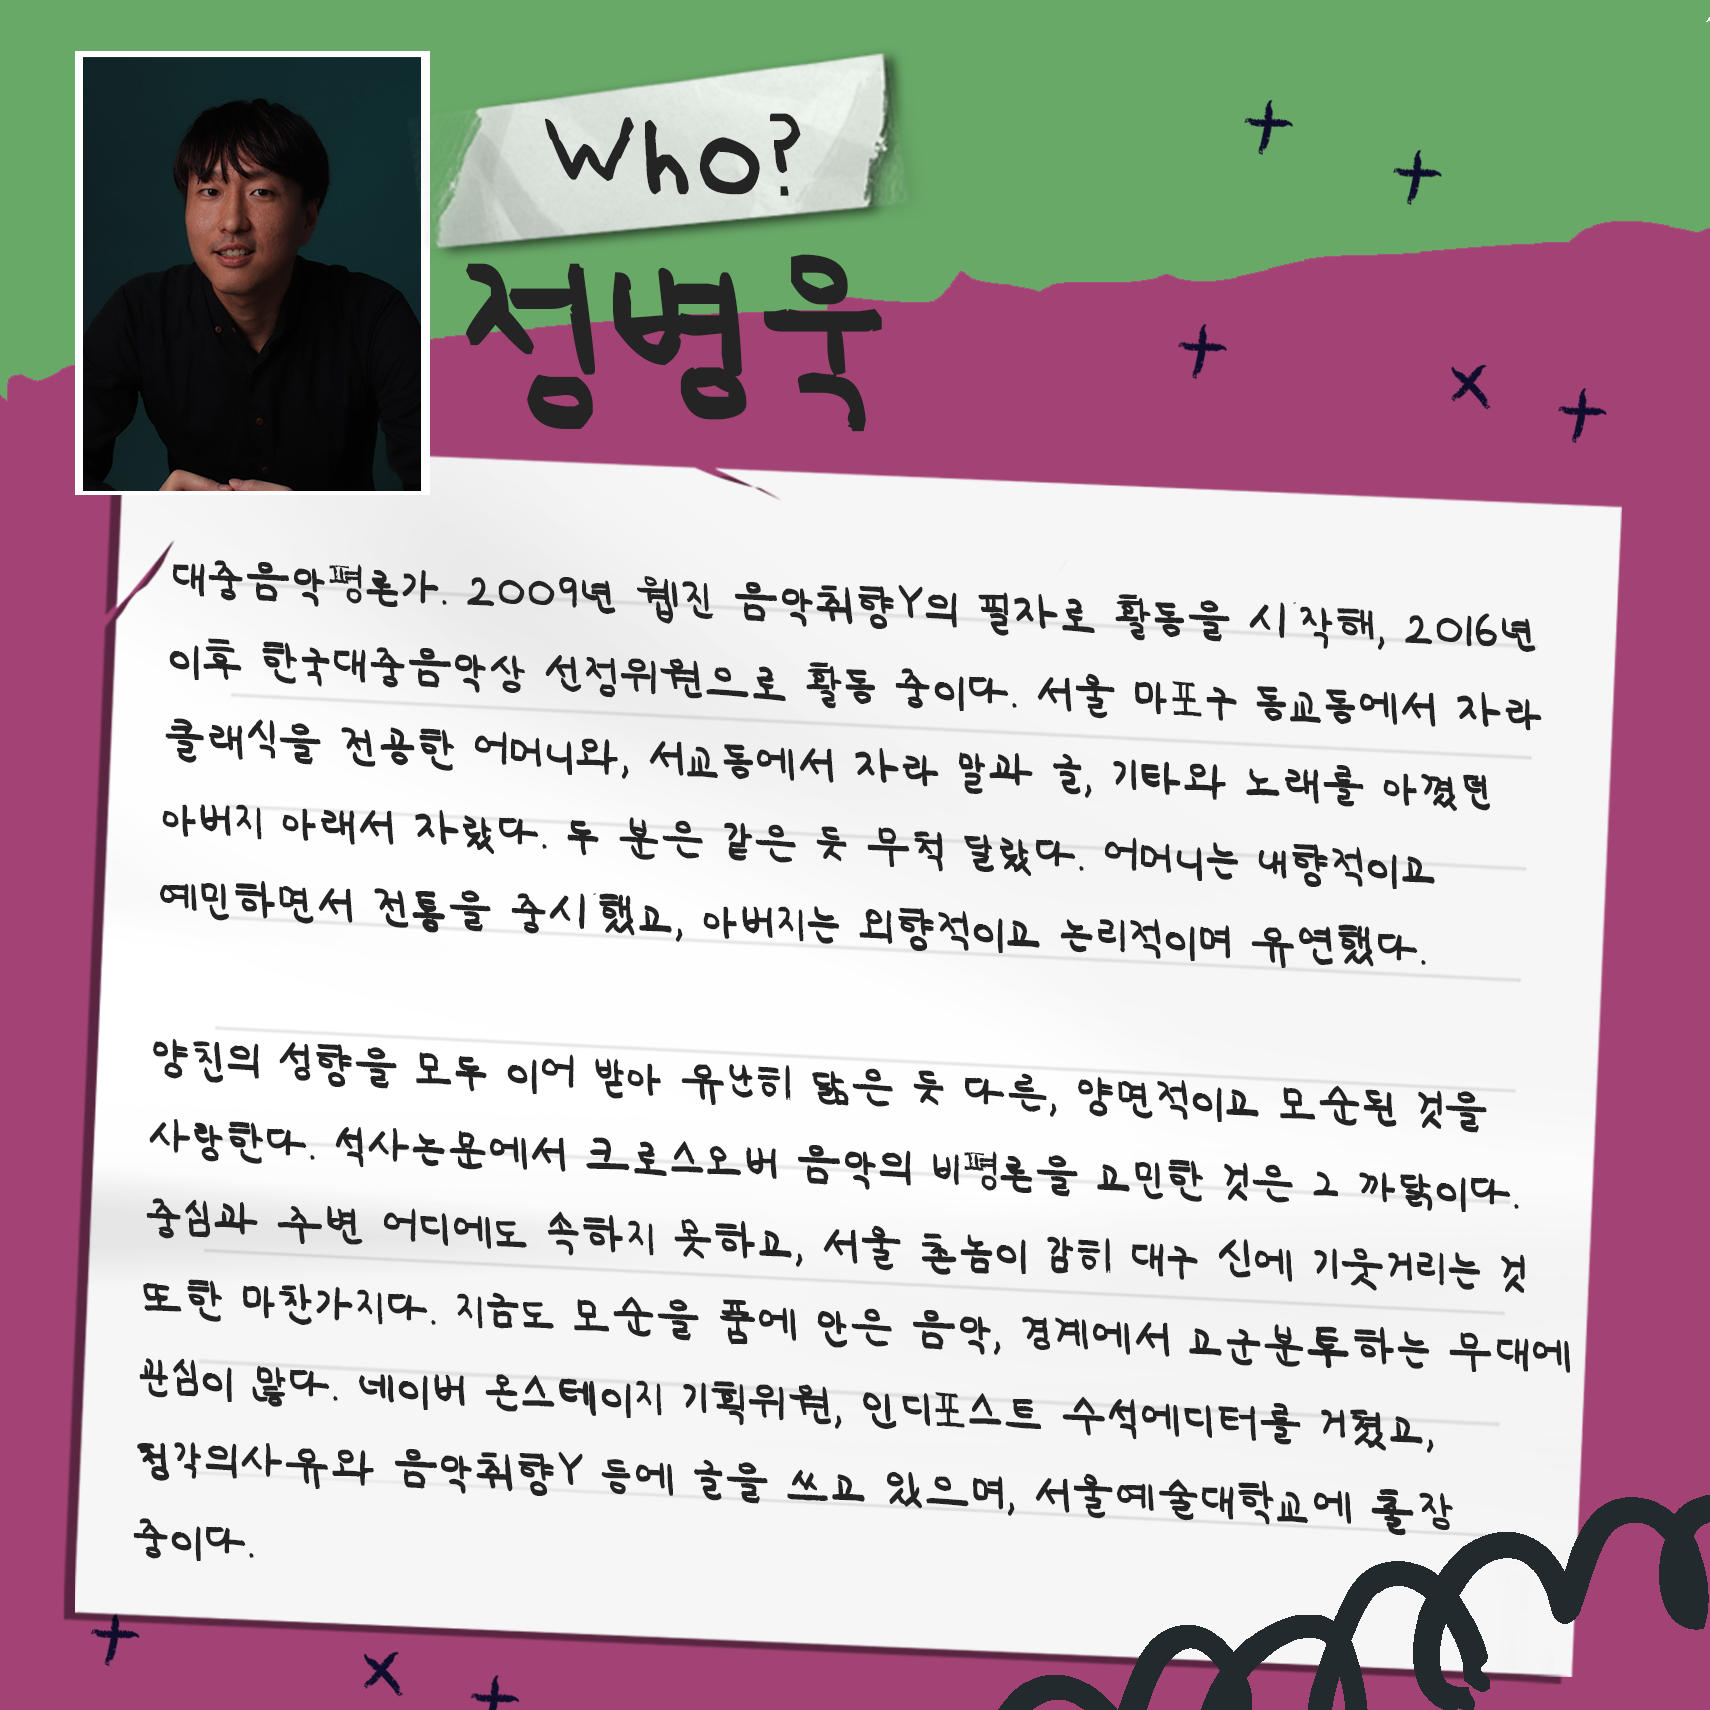 Who?
정병욱
대중음악평론가. 2009년 웹진 음악취향Y의 필자로 활동을 시작해, 2016년
이후 한국대중음악상 선정위원으로 활동 중이다. 서울 마포구 동교동에서 자라
클래식을 전공한 어머니와, 서교동에서 자라 말과 글, 기타와 노래를 아꼈던
아버지 아래서 자랐다. 두 분은 같은 듯 무척 달랐다. 어머니는 내향적이고
예민하면서 전통을 중시했고, 아버지는 외향적이고 논리적이며 유연했다.
양친의 성향을 모두 이어 받아 유난히 닮은 듯 다른, 양면적이고 모순된 것을
사랑한다. 석사논문에서 크로스오버 음악의 비평론을 고민한 것은 그 까닭이다.
중심과 주변 어디에도 속하지 못하고, 서울 촌놈이 감히 대구 신에 기웃거리는 것
또한 마찬가지다. 지금도 모순을 품에 안은 음악, 경계에서 고군분투하는 무대에
관심이 많다. 네이버 온스테이지 기획위원, 인디포스트 수석에디터를 거쳤고,
정각의사유와 음악취향Y 등에 글을 쓰고 있으며, 서울예술대학교에 출강
중이다.